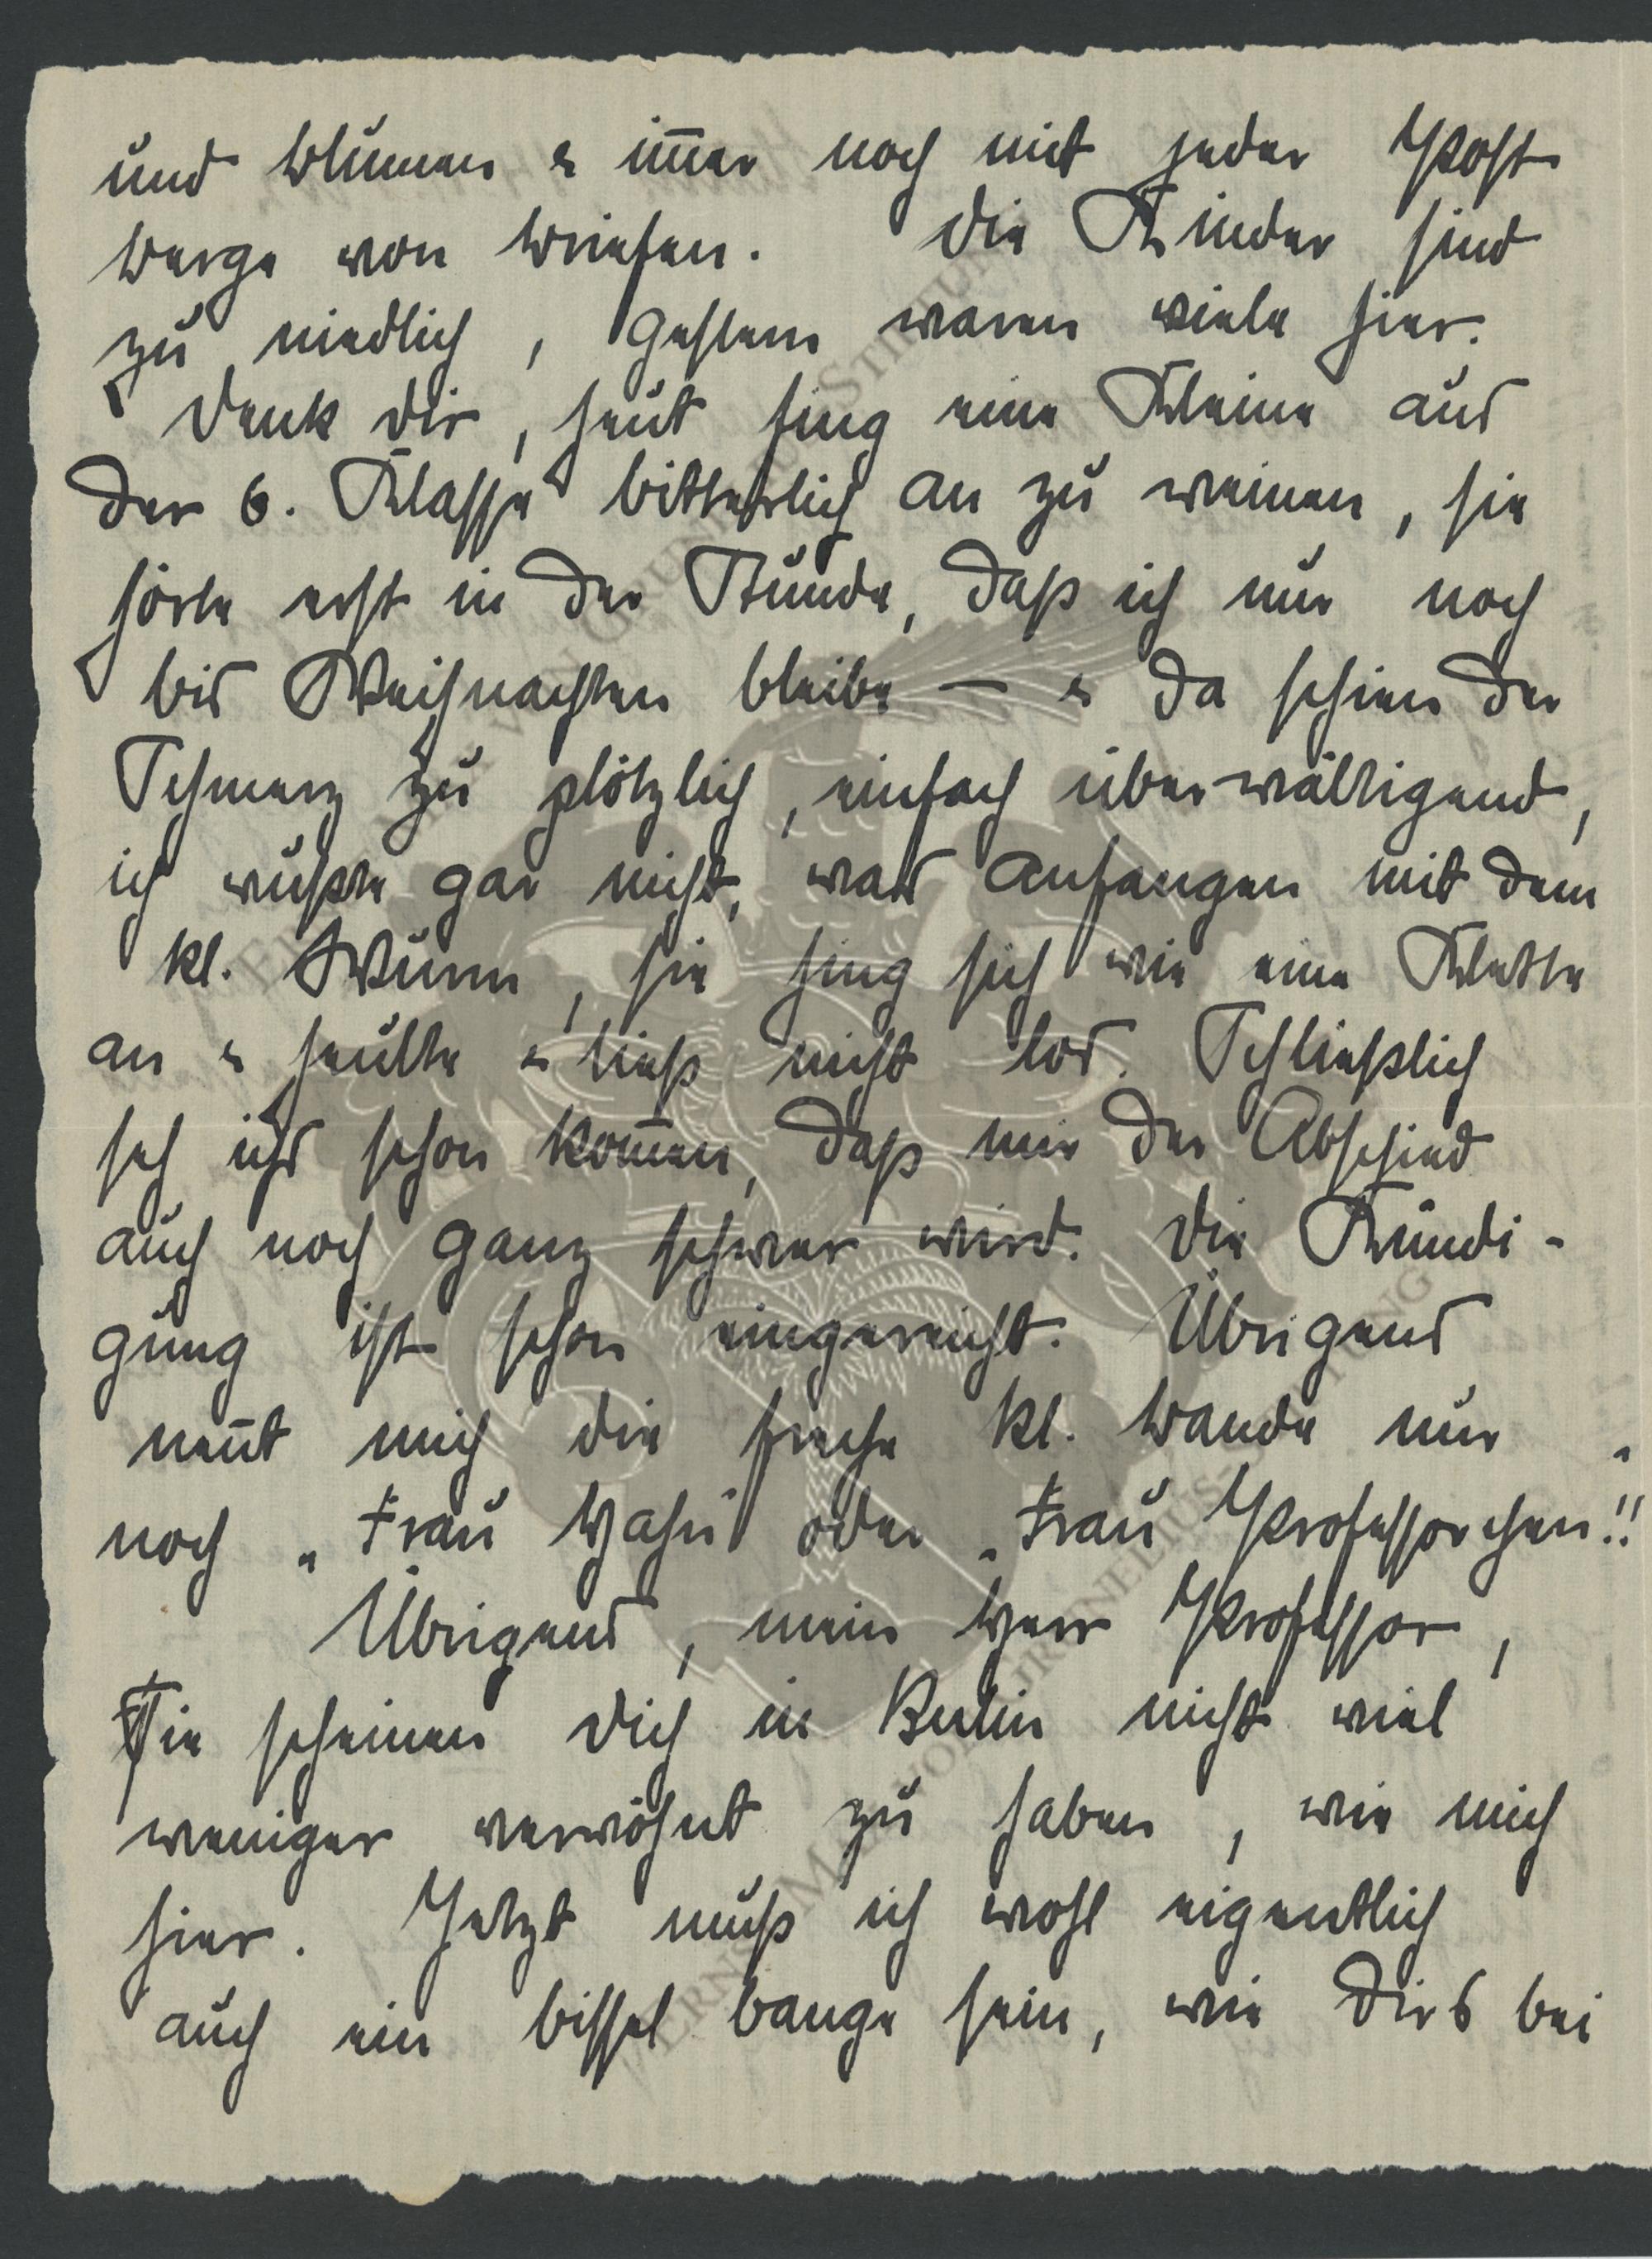 und Blumen & im̅er noch mit jeder Post
Berge von Briefen. Die Kinder sind
zu niedlich, gestern waren viele hier.
Denk Dir, heut fing eine Kleine aus
der 6. Klasse bitterlich an zu weinen, sie
hörte erst in der Stunde, daß ich nur noch
bis Weihnachten bleibe – & da schien der
Schmerz zu plötzlich, einfach überwältigend,
ich wußte gar nicht, was anfangen mit dem
kl. Wurm, sie hing sich wie eine Klette
an & heulte & ließ nicht los. Schließlich
seh ichs schon kom̅en, daß mir der Abschied
auch noch ganz schwer wird. Die Kündi-
gung ist schon eingereicht. Übrigens
nen̅t mich die freche kl. Bande nur
noch „Frau Hahn“ oder „Frau Professorchen“!!
Übrigens, mein Herr Professor,
Sie scheinen Dich in Berlin nicht viel
weniger verwöhnt zu haben, wie mich
hier. Jetzt muß ich wohl eigentlich
auch ein bissel bange sein, wie Dirs bei